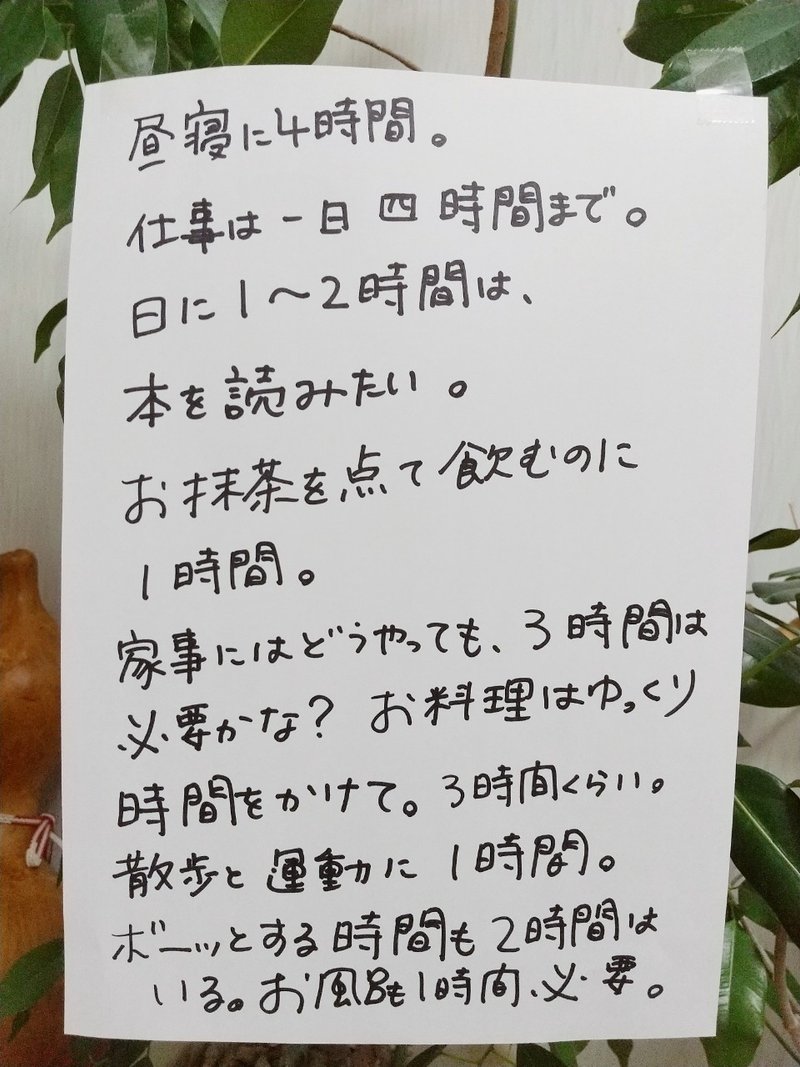 昼寝に4時間。
仕事は一日四時間まで。
日に1〜2時間は、
本を読みたい。
お抹茶を点て飲むのに
1時間。
家事にはどうやっても、3時間は
必要かな？お料理はゆっくり
時間をかけて。3時間くらい。
散歩と運動に1時間。
ボーッとする時間も2時間は
いる。お風呂も1時間、必要。